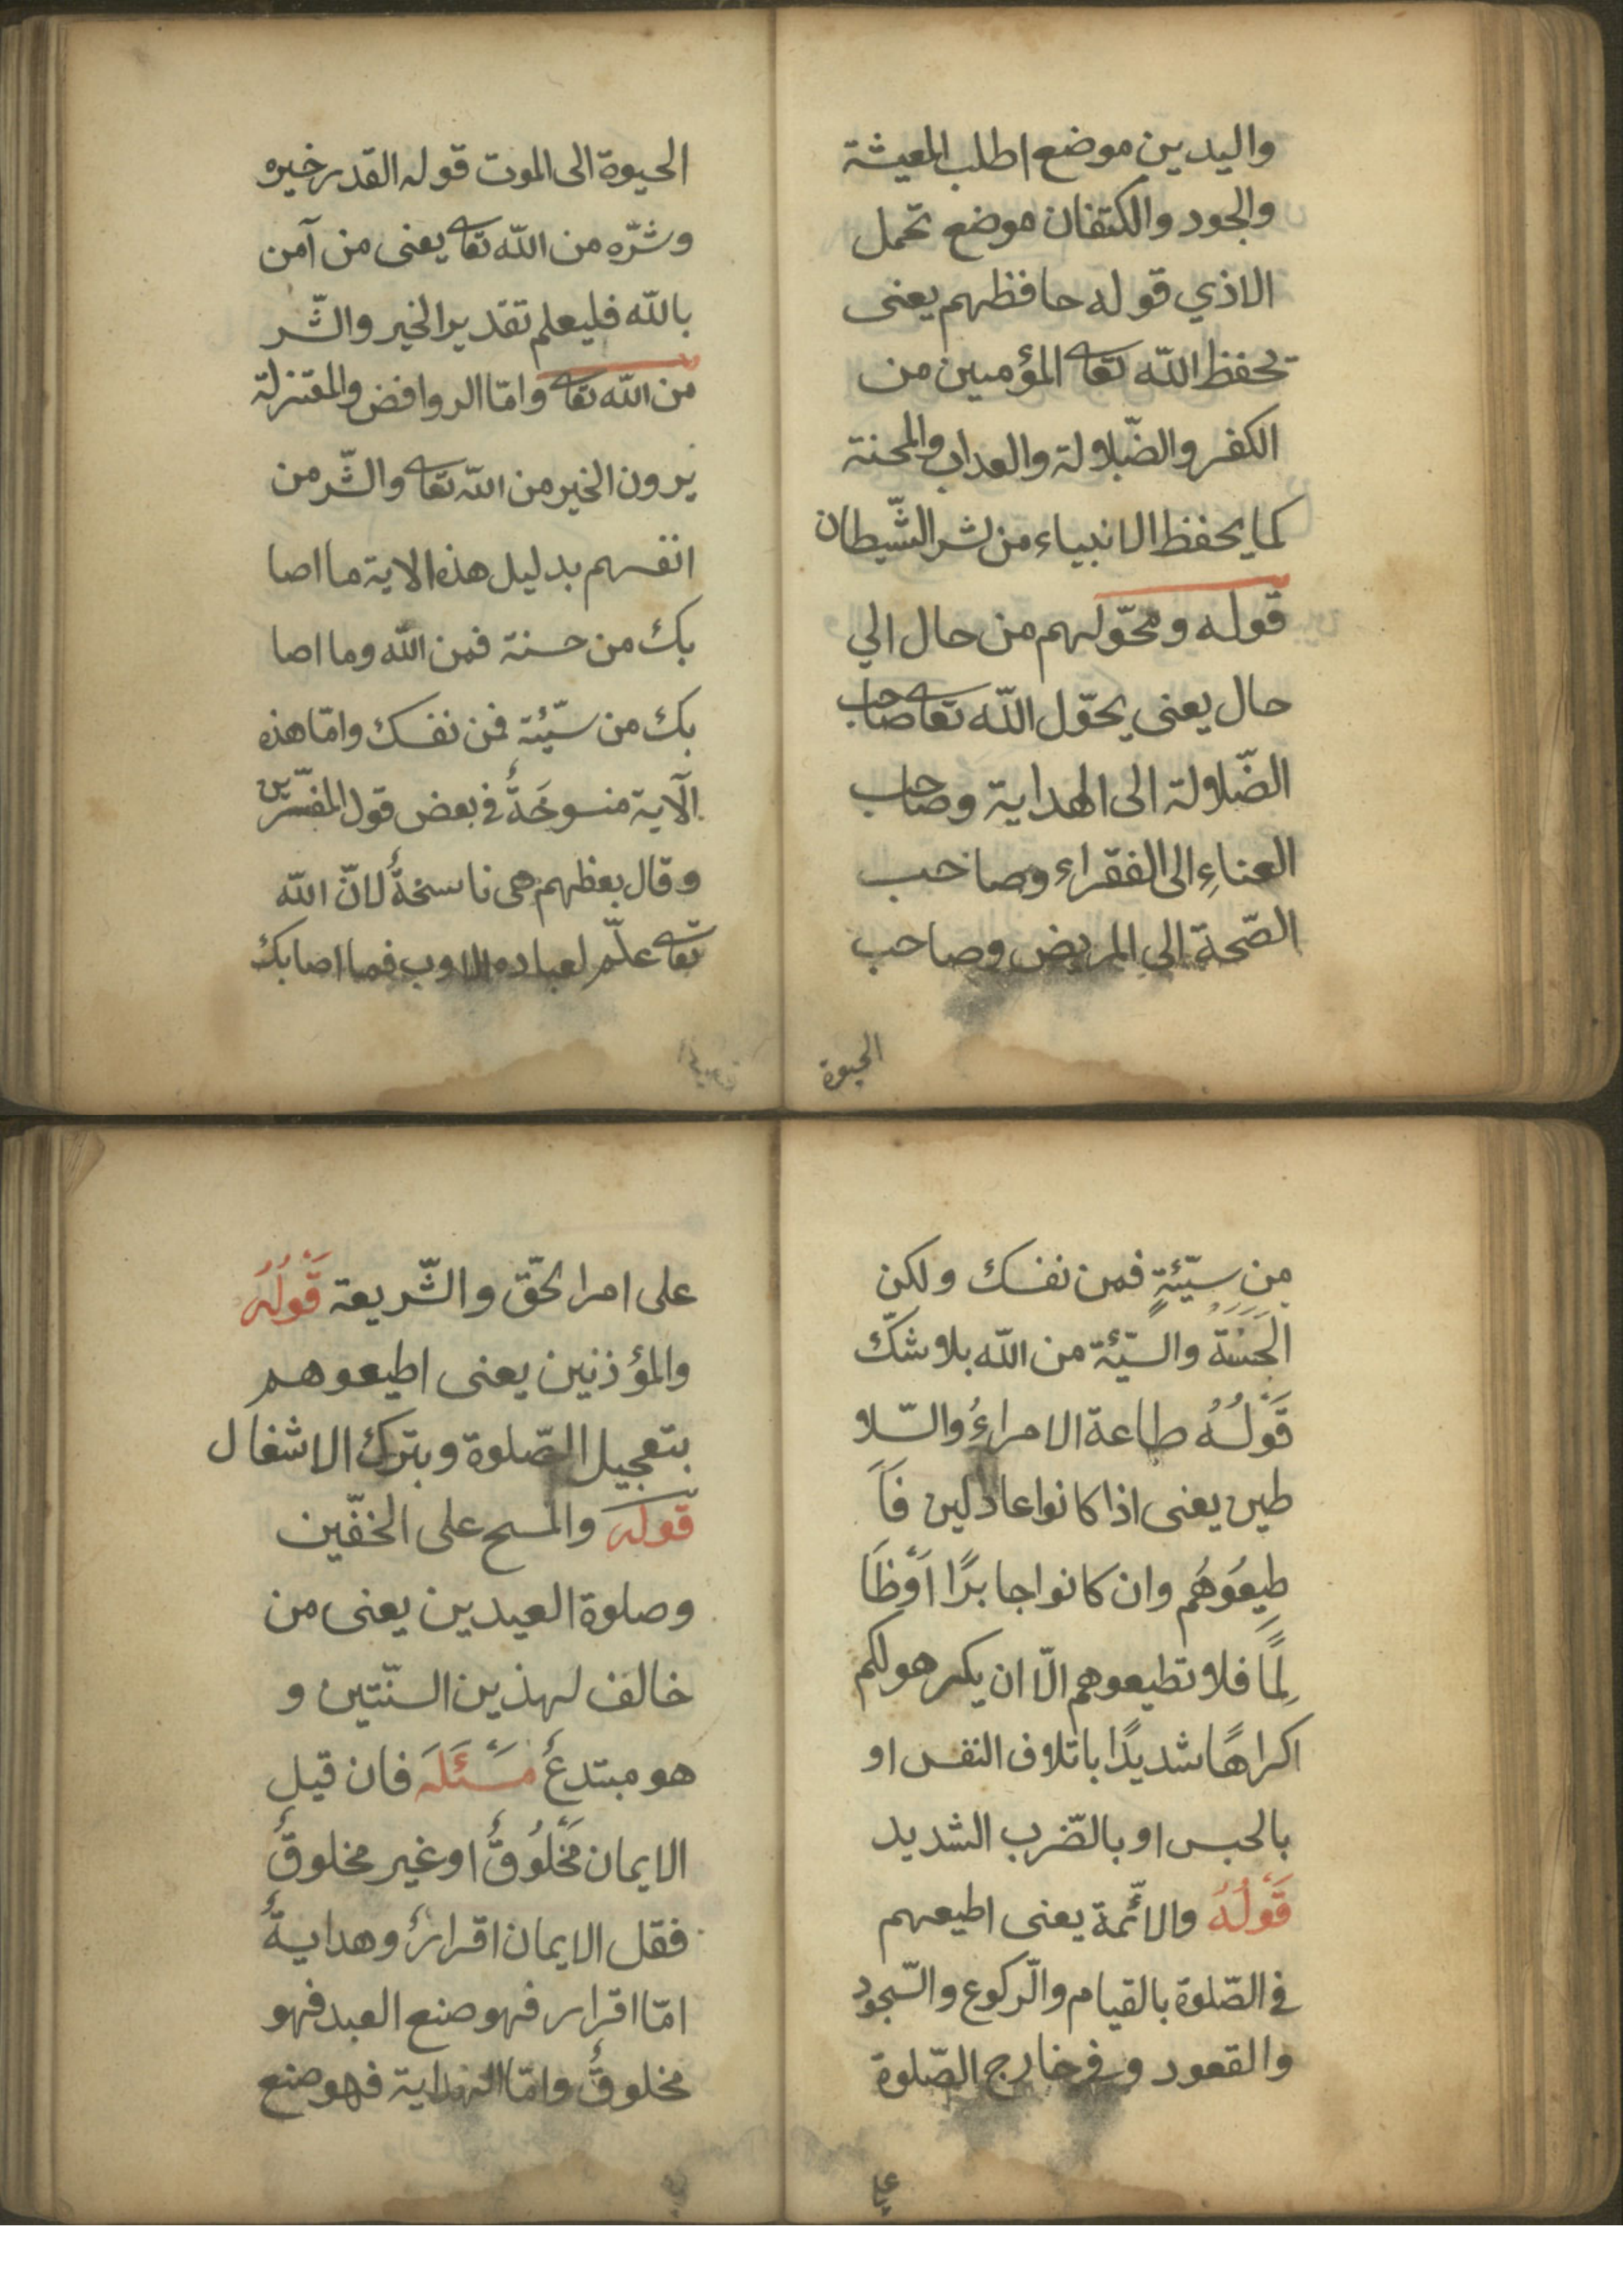 واليدين موضع اطلب المعيشة
والجود والكتفان موضع تحمل
الاذي قوله حافظهم يعنى
تحفظ الله تعا المؤمين من
الكفر والضّلاولة والعداب والمحنة
كما يحفظ الانبياء من شر الشّيطان
قوله ومحوّلهم من حال الي
حال يعنى يحوّل الله تعا صاحب
الضّلاولة الى الهداية وصاحب
العناءِ الى الفقراء وصاحب
الصّحة الى المريض وصاحب
الحيوة
الحيوة الى الموت قوله القدر خيره
وشرّه من اللّه تعا يعنى من آمن
باللّه فليعلم تقدير الخير والشّر
من اللّه تعا وامّا الروافض والمقتزلة
يرون الخير من اللّه تعا والشّر من
انفسهم بدليل هذه الاية ما اصا
بك من حسنة فمن اللّه وما اصا
بك من سيّئة فمن نفسك وامّا هذه
الآية منسوخَةٌ في بعض قول المفسّرين
وقال بعظهم هى ناسخةٌ لانّ اللّه
تعا علّم لعباده الاوب فما اصابك
من سيّئةٍ فمن نفسك ولكن
الحَسَنَةُ والسّيّئة من اللّه بلا شكّ
قَوْلُهُ طاعة الامراءُ والسّلا
طين يعنى اذا كانوا عادلين فَاَ
طِيعُوهُم وان كانوا جابرًا اَوْظَا
لِمًا فلا تطيعوهم الّا ان يكرهولكم
اكراهًا شديدًا باتلاف النفس او
بالحبس او بالضّرب الشديد
قَوْلُهُ والائّمة يعنى اطيعهم
في الصّلوة بالقيام والرّكوع والسّجود
والقعود وفى خارج الصّلوة
على
على امر الحّق والشّريعة قَوْلُهُ
والمؤذنين يعنى اطيعوهم
بتعجيل الصّلوة وبترك الاشغال
قوله والمسح على الخفّين
وصلوة العيدين يعنى من
خالف لهذين السنّتين و
هو مبتدعٌ مَسْئَلَه فان قيل
الايمان مَخْلُوقٌ او غير مخلوقٌ
فقل الايمان اقرارٌ وهدايةٌ
امّا اقرار فهو صنع العبد فهو
مخلوقٌ وامّا الهداية فهو صنع